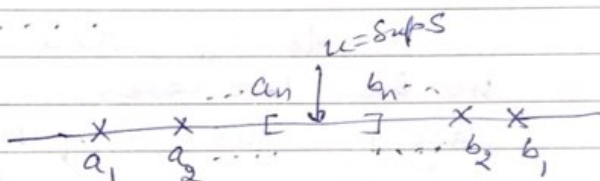 .....
u = Sup S
...an bn...
[ ]
a1 a2 ..... .... b2 b1